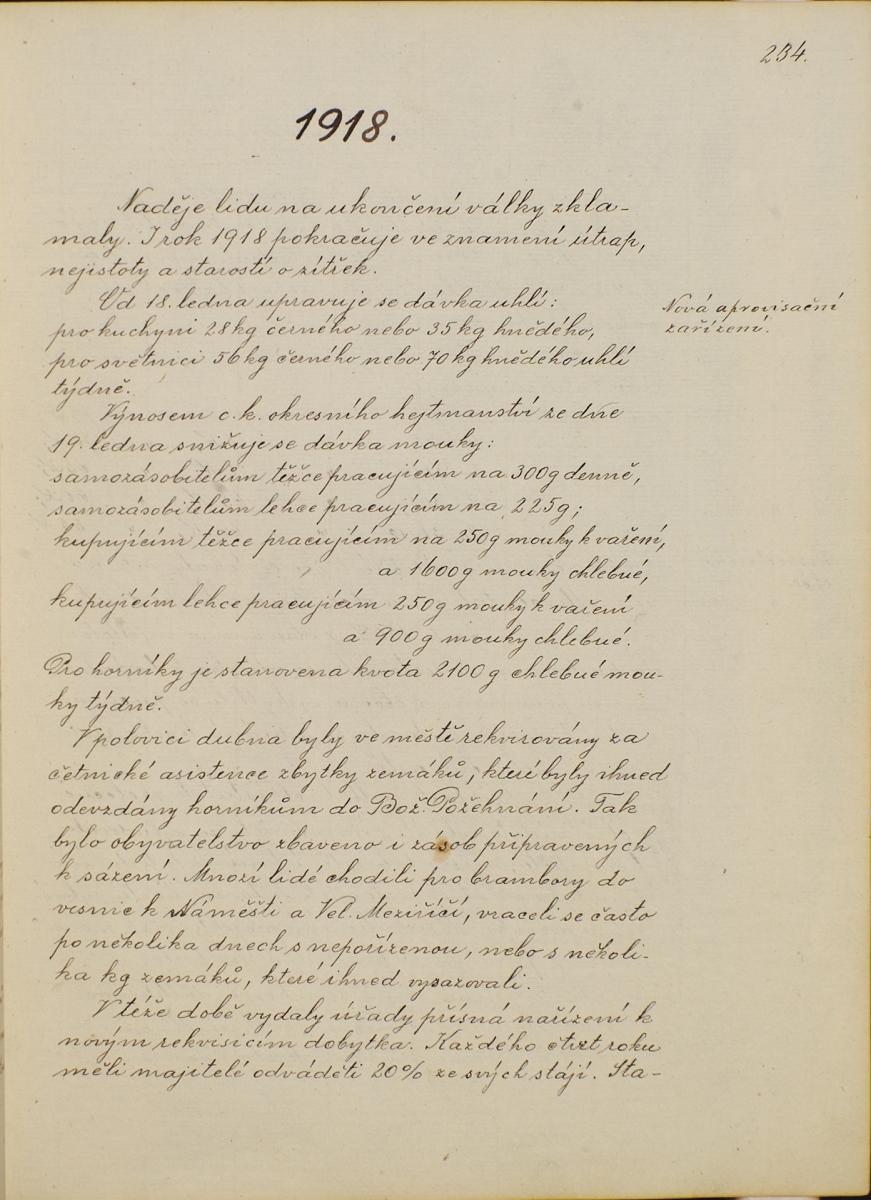 234.
1918.
Naděje lidu na ukončení války zkla-
maly. I rok 1918 pokračuje ve znamení útrap,
nejistoty a starostí o zítřek.
Od 18. ledna upravuje se dávka uhlí:
Nová aprovisační
zařízení.
pro kuchyni 28 kg černého nebo 35 kg hnědého,
pro světnici 56 kg černého nebo 70 kg hnědého uhlí
týdně.
Výnosem c. k. okresního hejtmanství ze dne
19. ledna snižuje se dávka mouky:
samozásobitelům těžce pracujícím na 300g denně,
samozásobitelům lehce pracujícím na 225g;
kupujícím těžce pracujícím na 250g mouky k vaření,
a 1600g mouky chlebné,
kupujícím lehce pracujícím 250g mouky k vaření
a 900g mouky chlebné.
Pro horníky je stanovena kvota 2100g chlebné mou-
ky týdně.
V polovici dubna byly ve městě rekvirovány za
četnické asistence zbytky zemáků, které byly ihned
odevzdány horníkům do Bož. Požehnání. Tak
bylo obyvatelstvo zbaveno i zásob připravených
k sázení. Mnozí lidé chodili pro brambory do
vesnic k Náměšti a Vel. Meziříčí, vraceli se často
po několika dnech s nepořízenou, nebo s několi-
ka kg zemáků, které ihned vysazovali.
V téže době vydaly úřady přísná nařízení k
novým rekvisicím dobytka. Každého čtvrt roku
měli majitelé odváděti 20% ze svých stájí. Sta-